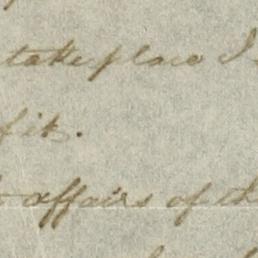 take place I
of it.
affairs of th